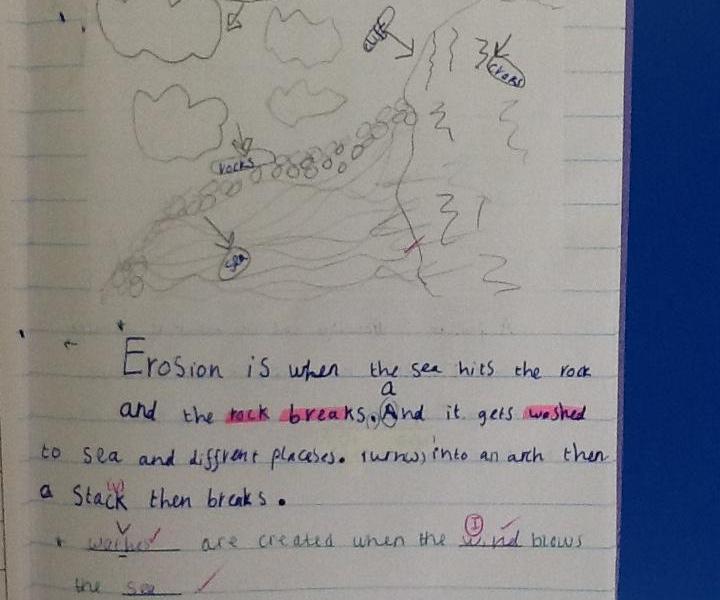 cliff
cracks
rocks
sea
Erosion is when the sea hits the rock
a
and the rock breaks. And it gets washed
to sea and diffrent placeses. turns, into an arch then
a Stack then breaks.
are created when the wind blows
the sea